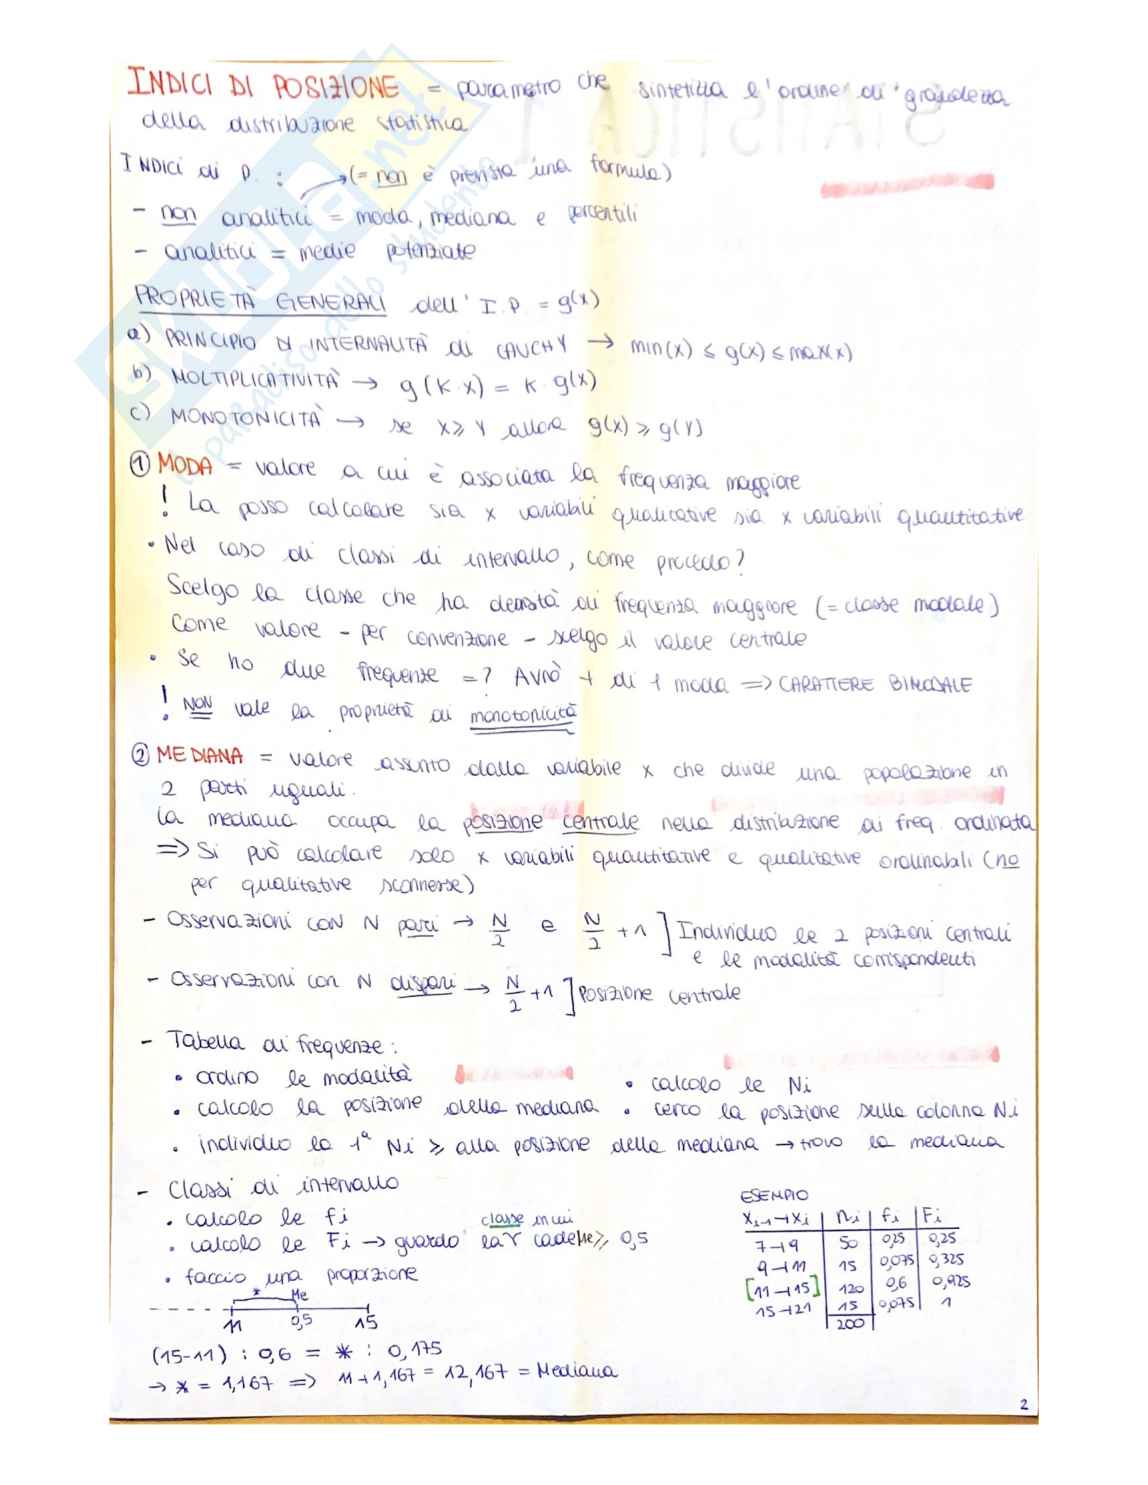 INDICI DI POSIZIONE = parametro che sintetizza l'ordine di grandezza
della distribuzione statistica
INDICI di P. : (= non è prevista una formula)
- non analitici = moda, mediana e percentili
- analitici = medie potenziate
PROPRIETÀ GENERALI dell' I.P. = g(x)
a) PRINCIPIO DI INTERNALITÀ di CAUCHY → min(x) ≤ g(x) ≤ max(x)
b) MOLTIPLICATIVITÀ → g(K·x) = K·g(x)
c) MONOTONICITÀ → se X ≥ Y allora g(X) ≥ g(Y)
① MODA = valore a cui è associata la frequenza maggiore
! La posso calcolare sia x variabili qualitative sia x variabili quantitative
• Nel caso di classi di intervallo, come procedo?
Scelgo la classe che ha densità di frequenza maggiore (= classe modale)
Come valore - per convenzione - scelgo il valore centrale
• Se ho due frequenze =? Avrò + di 1 moda => CARATTERE BIMODALE
! NON vale la proprietà di monotonicità
② MEDIANA = valore assunto dalla variabile x che divide una popolazione in
2 parti uguali.
La mediana occupa la posizione centrale nella distribuzione di freq. ordinata
=> Si può calcolare solo x variabili quantitative e qualitative ordinabili (no
per qualitative sconnesse)
- Osservazioni con N pari → N/2 e N/2 + 1 ] Individuo le 2 posizioni centrali
e le modalità corrispondenti
- Osservazioni con N dispari → N/2 + 1 ] Posizione centrale
- Tabella di frequenze:
• ordino le modalità • calcolo le Ni
• calcolo la posizione della mediana • cerco la posizione sulla colonna Ni
• individuo la 1ª Ni ≥ alla posizione della mediana → trovo la mediana
- Classi di intervallo
• calcolo le fi
• calcolo le Fi → guardo la classe in cui cade Me ≥ 0,5
• faccio una proporzione
* Me
11 0,5 15
(15-11) : 0,6 = * : 0,175
→ * = 1,167 => 11+1,167 = 12,167 = Mediana
ESEMPIO
Xi-1 ⊣ Xi | ni | fi | Fi
7 ⊣ 9 | 50 | 0,25 | 0,25
9 ⊣ 11 | 15 | 0,075 | 0,325
[11 ⊣ 15] | 120 | 0,6 | 0,925
15 ⊣ 21 | 15 | 0,075 | 1
200
2
SKUOLA.net
il paradiso dello studente